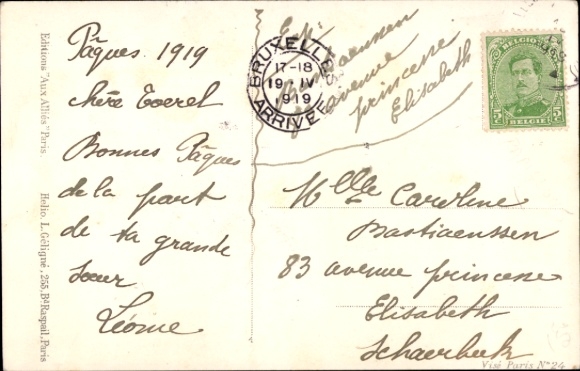 Pâques 1919
chère Toerel
Bonnes Pâques
de la part
de ta grande
sœur
Léonie
Exp:
Bastiaenssen
avenue
princesse
Elisabeth
BRUXELLES
17-18
19 IV
1919
ARRIVEE
BELGIQUE
5c 5c
BELGIË
Mlle Caroline
Bastiaenssen
83 avenue princesse
Elisabeth
Schaerbeek
Editions "Aux Alliés" Paris
Helio. L. Géligné, 255, Bd Raspail, Paris
Visé Paris No 24